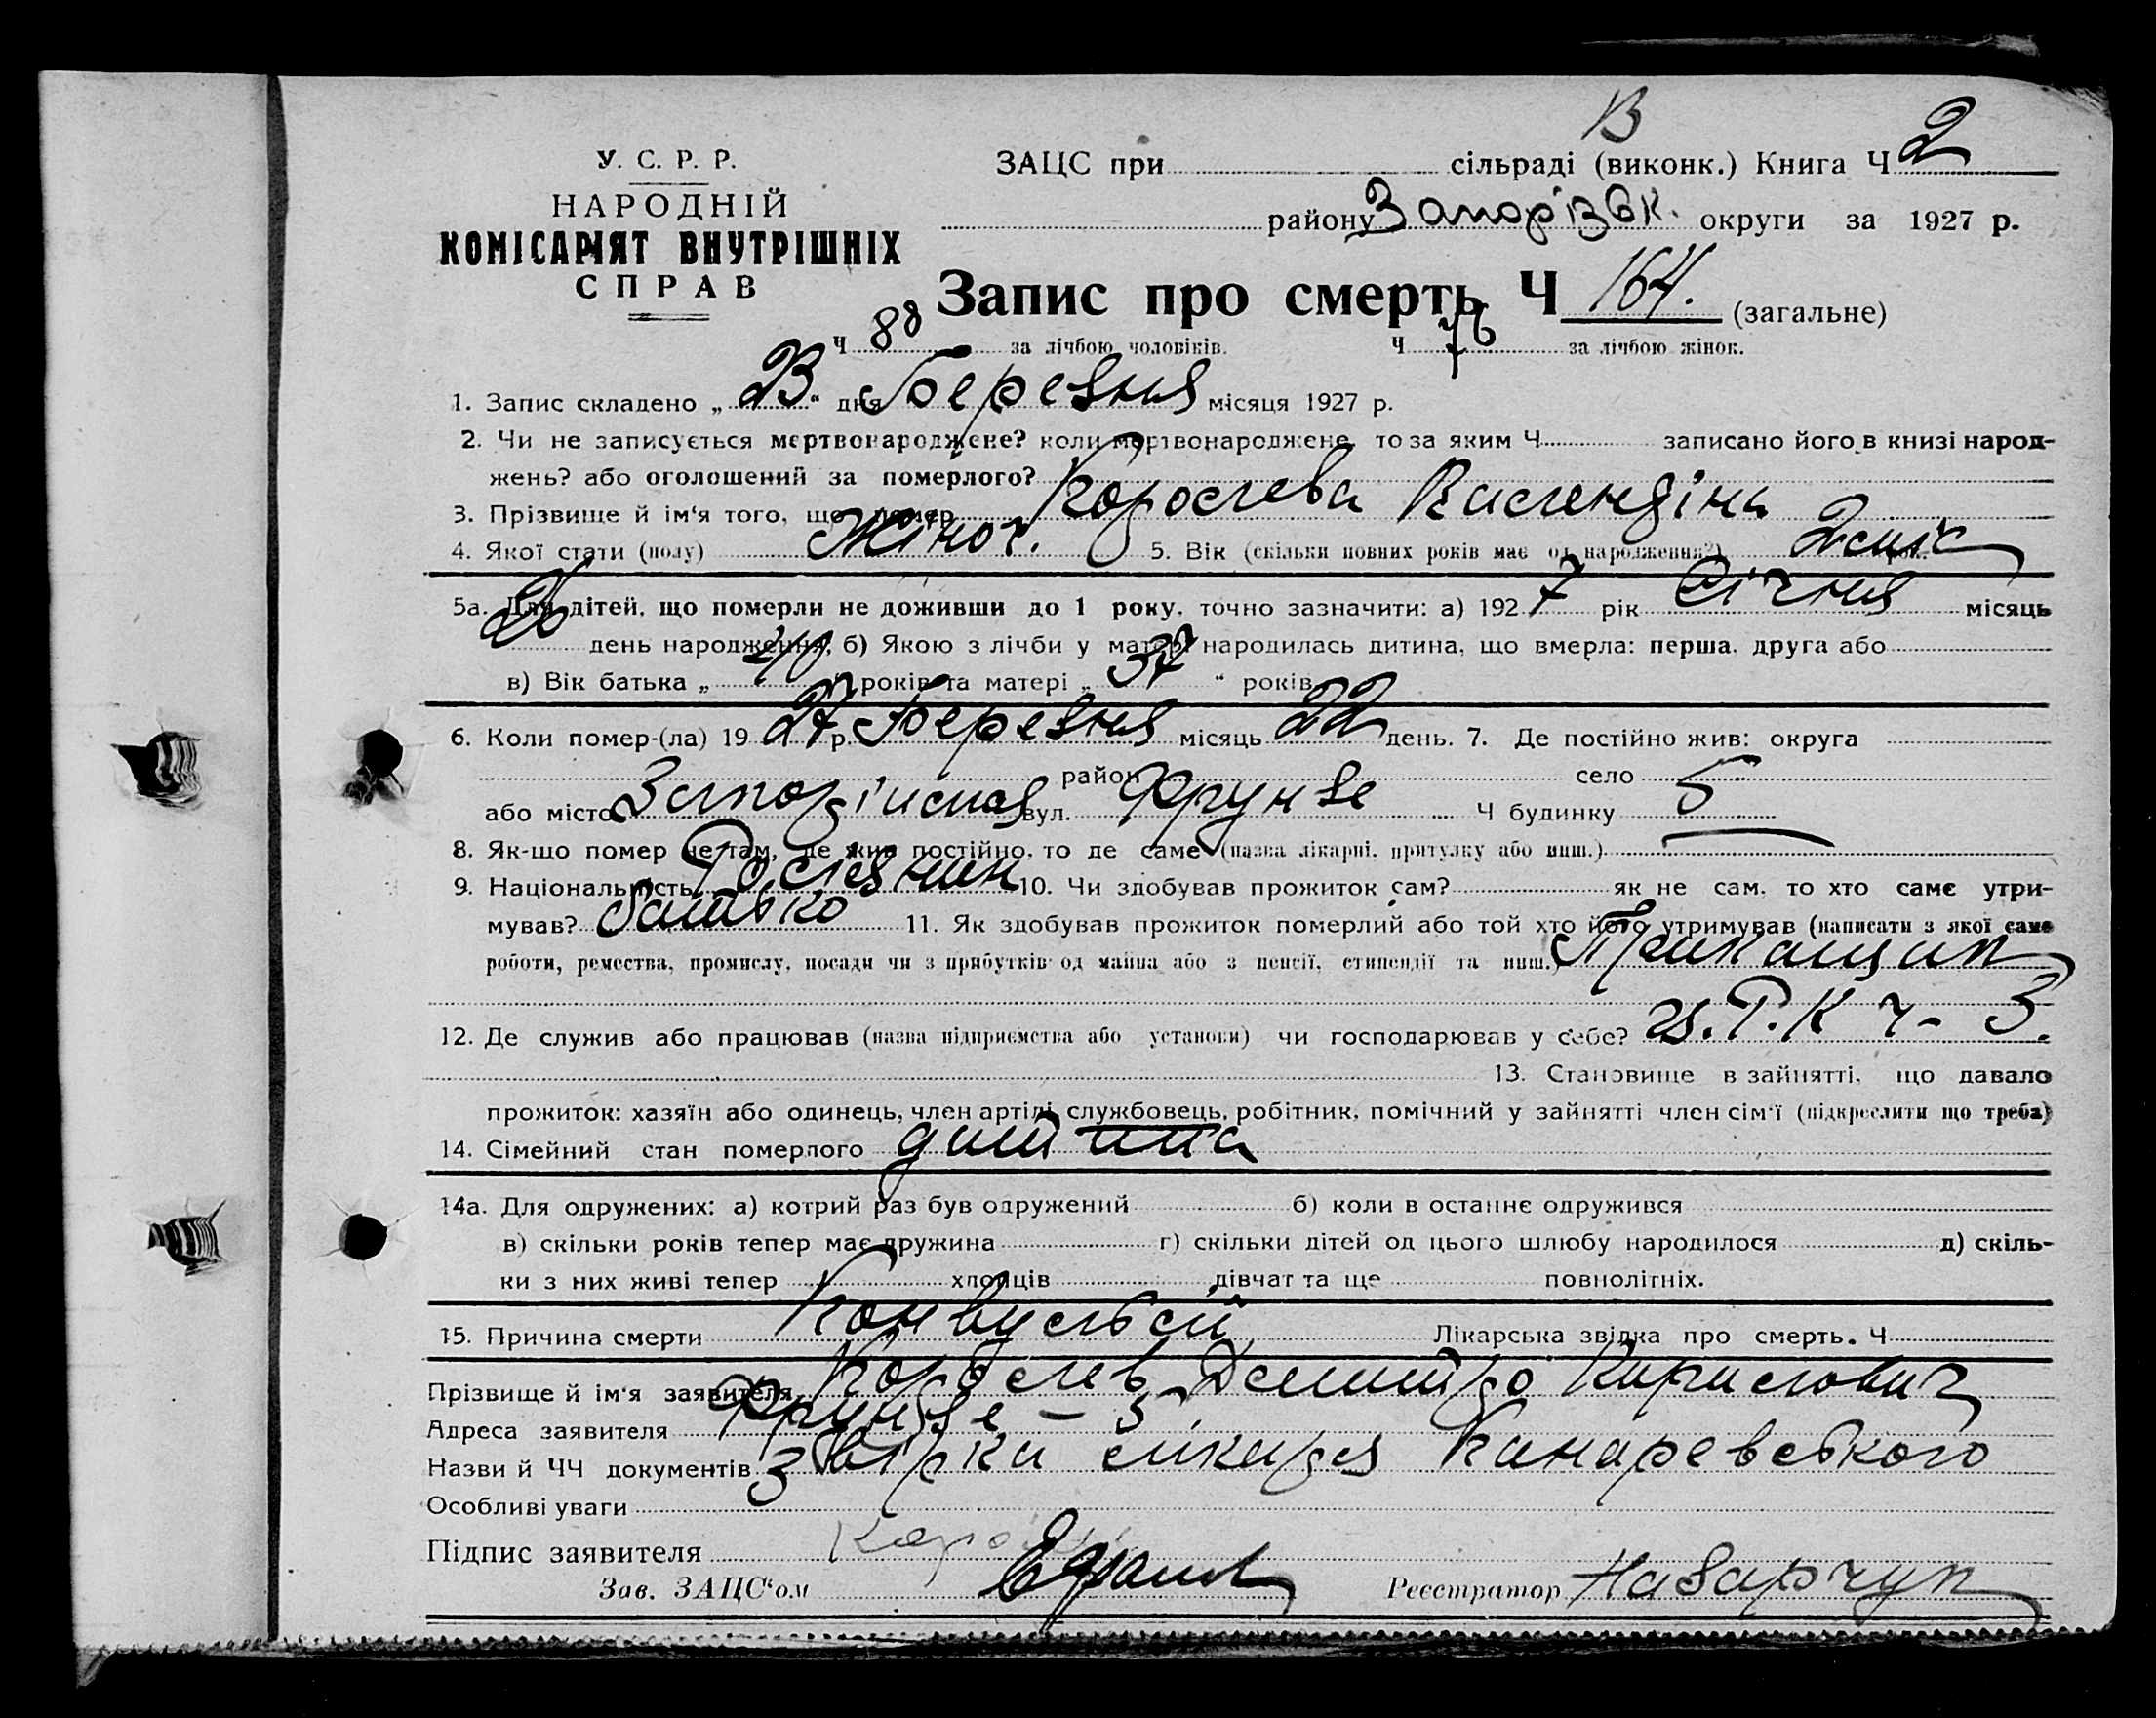 В
У. С. Р. Р.
НАРОДНІЙ
КОМІСАРІЯТ ВНУТРІШНІХ
СПРАВ
ЗАЦС при сільраді (виконк.) Книга Ч 2
району Запорізьк. округи за 1927 р.
Запис про смерть Ч 164. (загальне)
Ч 88 за лічбою чоловіків. Ч 76 за лічбою жінок.
1. Запис складено „23“ дня Березня місяця 1927 р.
2. Чи не записується мертвонароджене? коли мертвонароджене, то за яким Ч записано його в книзі народ-
жень? або оголошений за померлого?
3. Прізвище й ім'я того, що помер Королєва
4. Якої стати (полу) Жіноч. 5. Вік (скільки повних років має од народження?) 2 міс
5а. Для дітей, що померли не доживши до 1 року, точно зазначити: а) 1927 рік Січня місяць
26 день народження, б) Якою з лічби у матері народилась дитина, що вмерла: перша, друга або
в) Вік батька „40“ років та матері „37“ років
6. Коли помер-(ла) 1927 р. Березня місяць 22 день. 7. Де постійно жив: округа
район село
або місто Запоріжжя вул. Фрунзе Ч будинку 5
8. Як-що помер не там, де жив постійно, то де саме (назва лікарні, притулку або инш.)
9. Національність Росіянин 10. Чи здобував прожиток сам? як не сам, то хто саме утри-
мував? батько 11. Як здобував прожиток померлий або той хто його утримував (написати з якої саме
роботи, ремества, промислу, посади чи з прибутків од майна або з пенсії, стипендії та инш.) Приказщик
12. Де служив або працював (назва підприємства або установи) чи господарював у себе? Р. К ч - 3.
13. Становище в зайнятті, що давало
прожиток: хазяїн або одинець, член артілі, службовець, робітник, помічний у зайнятті член сім'ї (підкреслити що треба)
14. Сімейний стан померлого дитина
14а. Для одружених: а) котрий раз був одружений б) коли в останнє одружився
в) скільки років тепер має дружина г) скільки дітей од цього шлюбу народилося д) скіль-
ки з них живі тепер хлопців дівчат та ще повнолітніх.
15. Причина смерти Конвульсії Лікарська звідка про смерть. Ч
Прізвище й ім'я заявителя Королєв Дмитро Кирилович
Адреса заявителя Фрунзе - 5
Назви й ЧЧ документів Звірка лікаря Канаревського
Особливі уваги
Підпис заявителя
Зав. ЗАЦС'ом
Реєстратор Назарчук